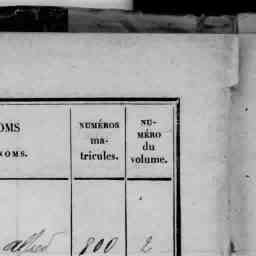 OMS
NOMS.
NUMÉROS
ma-
tricules.
NU-
MÉRO
du
volume.
alfred 800 2